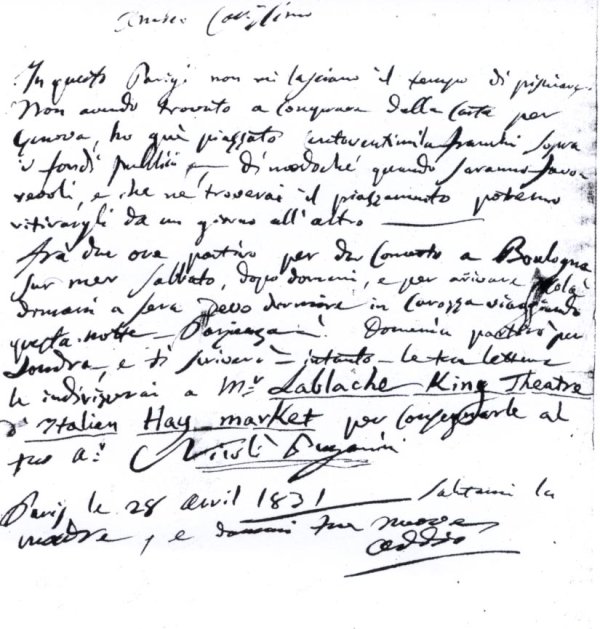 Amico Caviglino
In questo Parigi non vi lasciano il tempo di pisciare.
Non avendo trovato a Conguaro della Carta per
Genova, ho quì piazzato centoventimila franchi sopra
i fondi publici, di modochè quando saranno favo-
revoli, e che ne troverai il piazzamento potremo
ritirargli da un giorno all'altro
Frà due ore partirò per dar Concerto a Boulogne
sur mer Sabbato, dopo domani, e per arrivare colà
domani a sera devo dormire in Carozza viaggiando
questa notte - Pazienza! Domenica partirò per
Londra, e ti scriverò - intanto - le tue lettere
le indirizzerai a Mr. Lablache King Theatre
Italien Hay market per consegnarle al
tuo a:o Nicolò Paganini
Parig le 28 avril 1831 Salutami la
madre, e tue nuove
addio